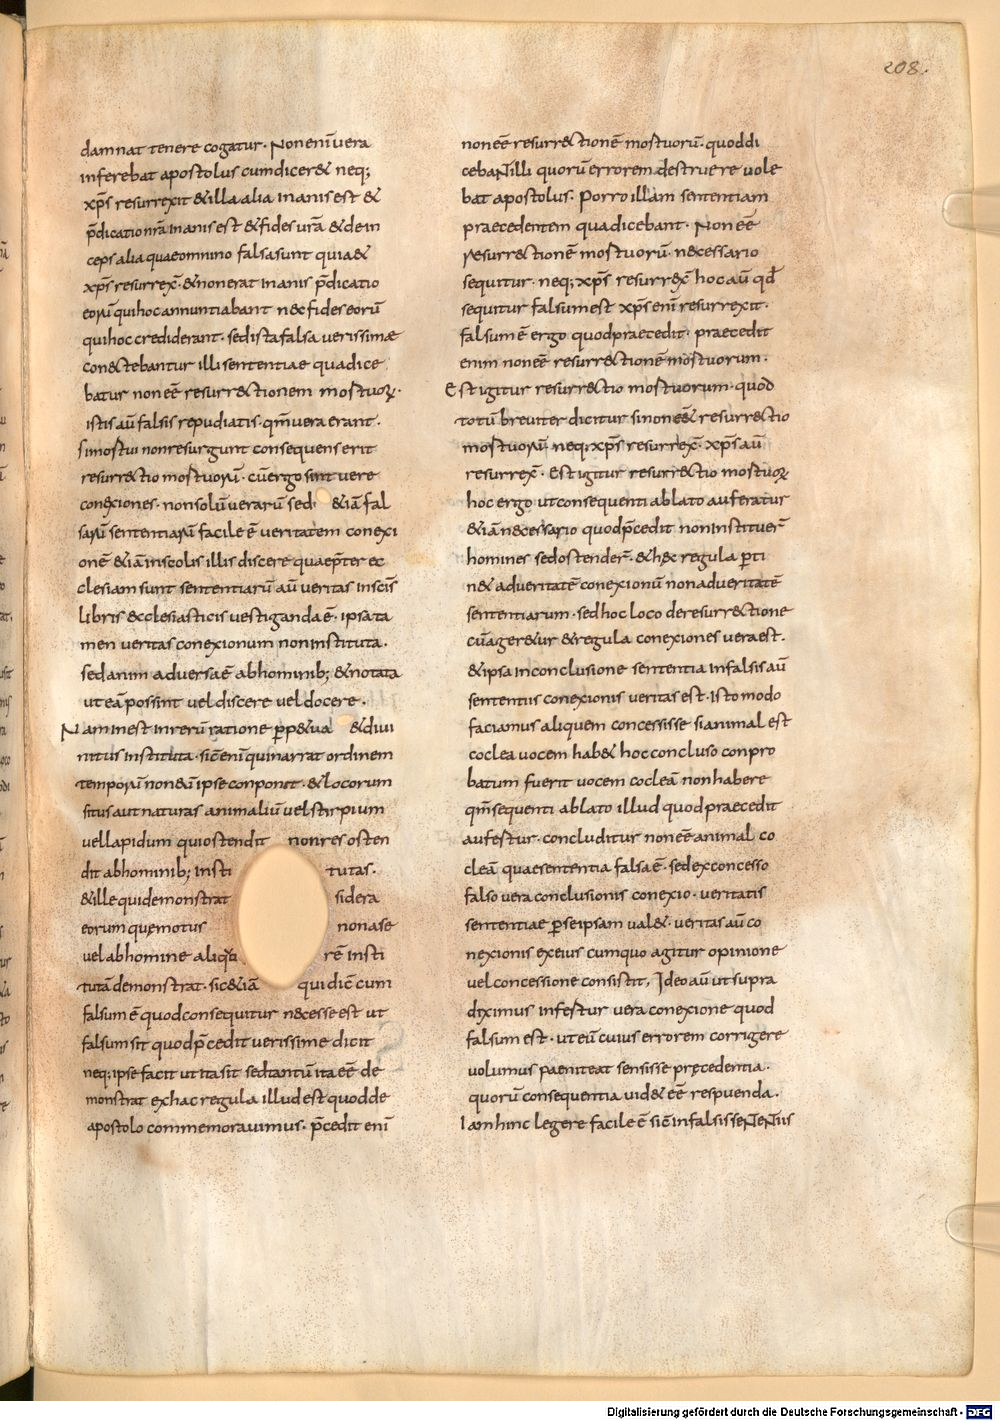 208.
damnat tenere cogatur. Non enī vera
inferebat apostolus cum dicer& neq;
xp̄s resurrexit & illa alia inanis est &
p̄dicatio nr̄a inanis est & fides ur̄a & dein
ceps alia quae omnino falsa sunt quia &
xp̄s resurrex̄. & non erat inanis p̄dicatio
eorū qui hoc annuntiabant nec fides eorū
qui hoc crediderant. sed ista falsa verissime
conectebantur illi sententiae qua dice
batur non eē resurrectionem mortuoꝝ.
istis aū falsis repudiatis. qm̄ vera erant.
si mortui non resurgunt consequens erit
resurrectio mortuorū. cū ergo sint vere
conexiones. non solū verarū sed & iā fal
sarū sententiarū facile ē veritatem conexi
onē & iā in scolis illis discere quae p̄ter ec
clesiam sunt sententiarū aū veritas in scīs
libris ecclesiasticis vestiganda ē. ipsa ta
men veritas conexionum non instituta.
sed animadversa ē ab hominib; & notata
ut eā possint vel discere vel docere.
Nam inest in rerū ratione p̱p&ua & divi
nitus instituta. sic̄ enī qui narrat ordinem
temporū non eū ipse conponit. & locorum
situs aut naturas animaliū vel stirpium
vel lapidum qui ostendit non res osten
dit ab hominib; insti tutas.
& ille qui demonstrat sidera
eorumque motus non a se
vel ab homine aliq̄ rē insti
tutā demonstrat. sic & iā qui dic̄ cum
falsum ē quod consequitur necesse est ut
falsum sit quod p̄cedit verissime dicit
neq; ipse facit ut ita sit sed tantū ita eē de
monstrat ex hac regula illud est quod de
apostolo commemoravimus. p̄cedit enī
non eē resurrectionē mortuorū. quod di
cebant illi quorū errorem destruere uole
bat apostolus. Porro illam sententiam
praecedentem qua dicebant. Non eē
resurrectionē mortuorū. necessario
sequitur. neq; xp̄s resurrex̄ hoc aū qđ
sequitur falsum est xp̄s enī resurrexit.
falsum ē ergo quod praecedit. praecedit
enim non eē resurrectionē mortuorum.
Est igitur resurrectio mortuorum. quod
totū breviter dicitur si non eē resurrectio
mortuorū neq; xp̄s resurrex̄. xp̄s aū
resurrex̄. Est igitur resurrectio mortuoꝝ
hoc ergo ut consequenti ablato auferatur
& iā necessario quod p̄cedit non instituer̄
homines sed ostender̄. & hęc regula ꝑti
n& ad veritatē conexionū non ad veritatē
sententiarum. sed hoc loco de resurrectione
cū ager&ur & regula conexiones vera est.
& ipsa in conclusione sententia in falsis aū
sententiis conexionis veritas est. isto modo
faciamus aliquem concessisse si animal est
coclea vocem hab& hoc concluso conpro
batum fuerit vocem cocleā non habere
qm̄ sequenti ablato illud quod praecedit
aufertur. concluditur non eē animal co
cleā quae sententia falsa ē. sed ex concesso
falso vera conclusionis conexio. veritatis
sententiae ꝑ se ipsam val&. veritas aū co
nexionis ex eius cum quo agitur opinione
vel concessione consistit, Ideo aū ut supra
diximus infertur vera conexione quod
falsum est. ut eū cuius errorem corrigere
volumus paeniteat sensisse pręcedentia.
quorū consequentia uid& eē respuenda.
Iam hinc legere facile ē sic̄ in falsis sententiis